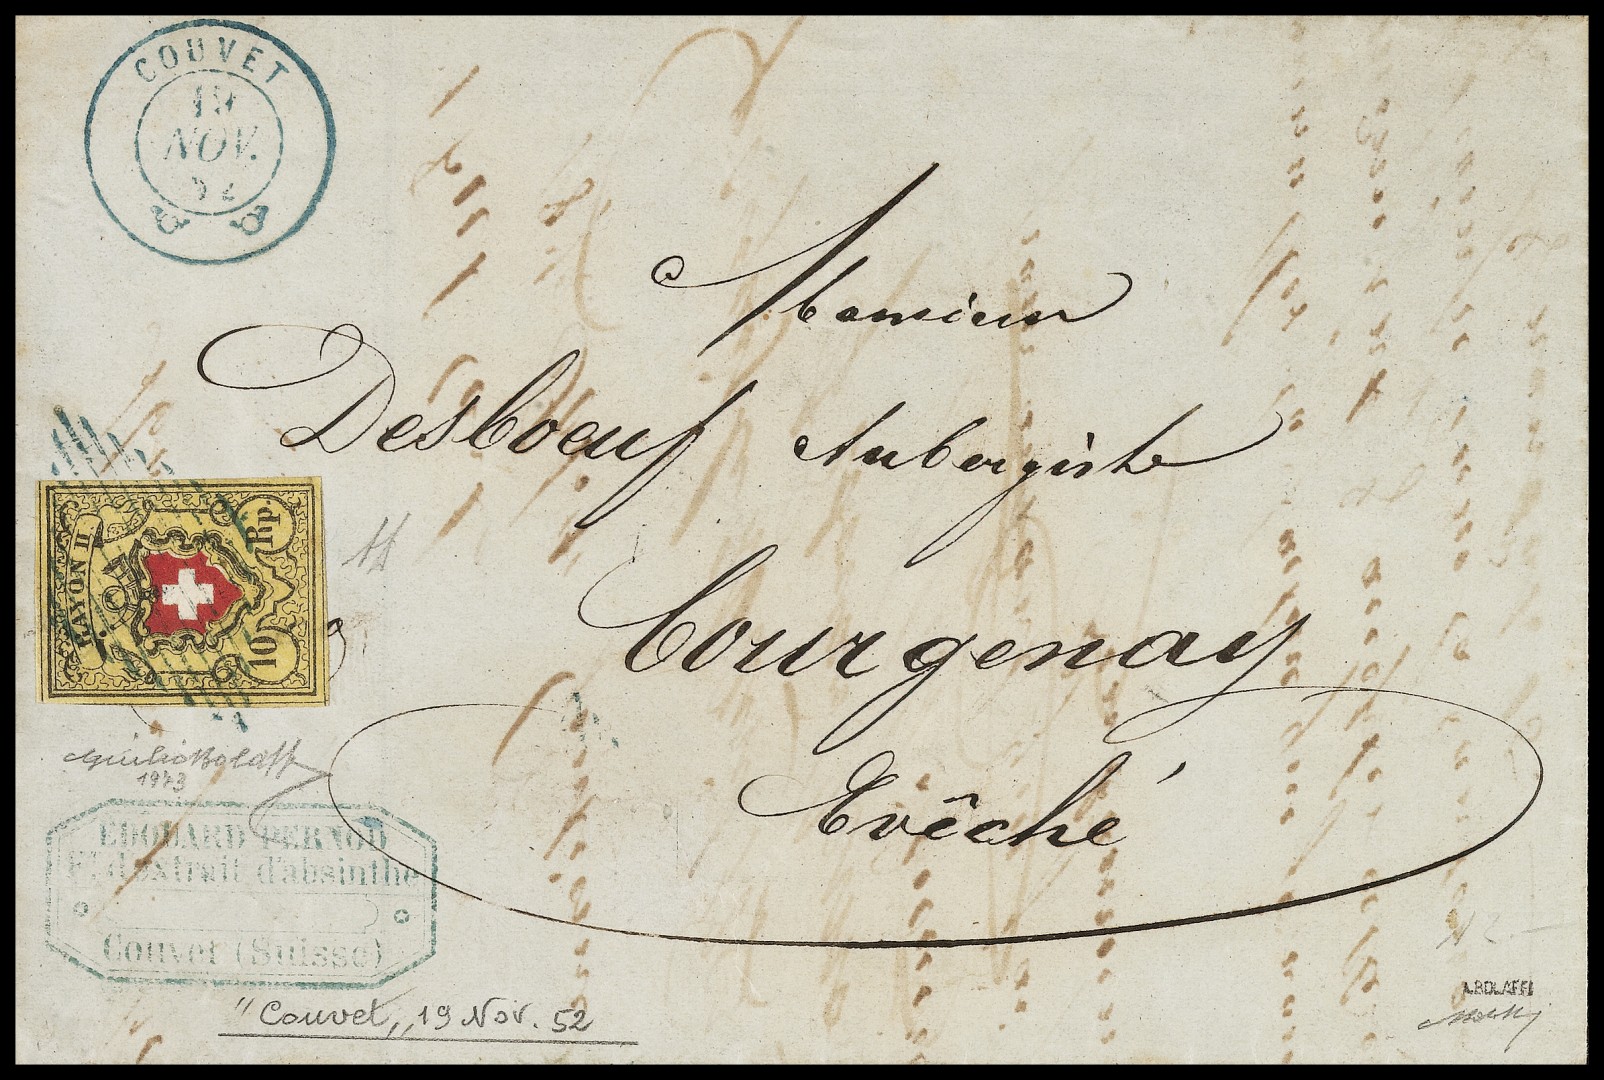 COUVET
19
NOV.
52
Monsieur
Desboeuf Aubergiste
Courgenay
Evêché
RAYON II
10 Rp.
Giulio Bolaffi
1943
EDOUARD PERNOD
Ft d'extrait d'absinthe
Couvet (Suisse)
"Couvet,, 19 Nov. 52
A.BOLAFFI